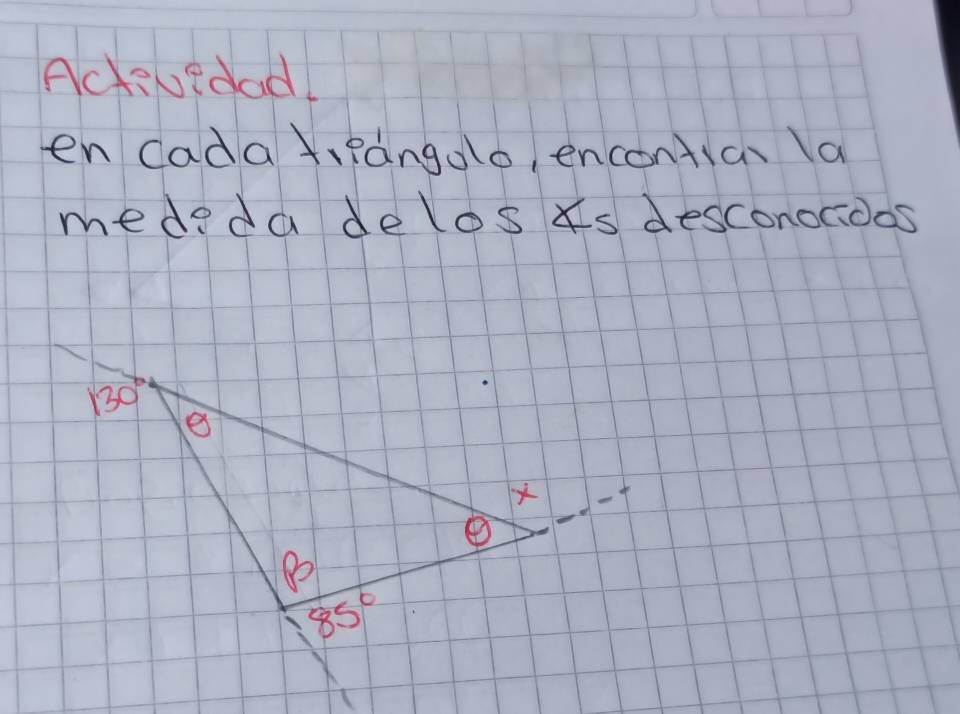 Actividad.
en cada triángulo, encontrar la
medida de los ∡s desconocidos
130°
θ
x
θ
β
85°